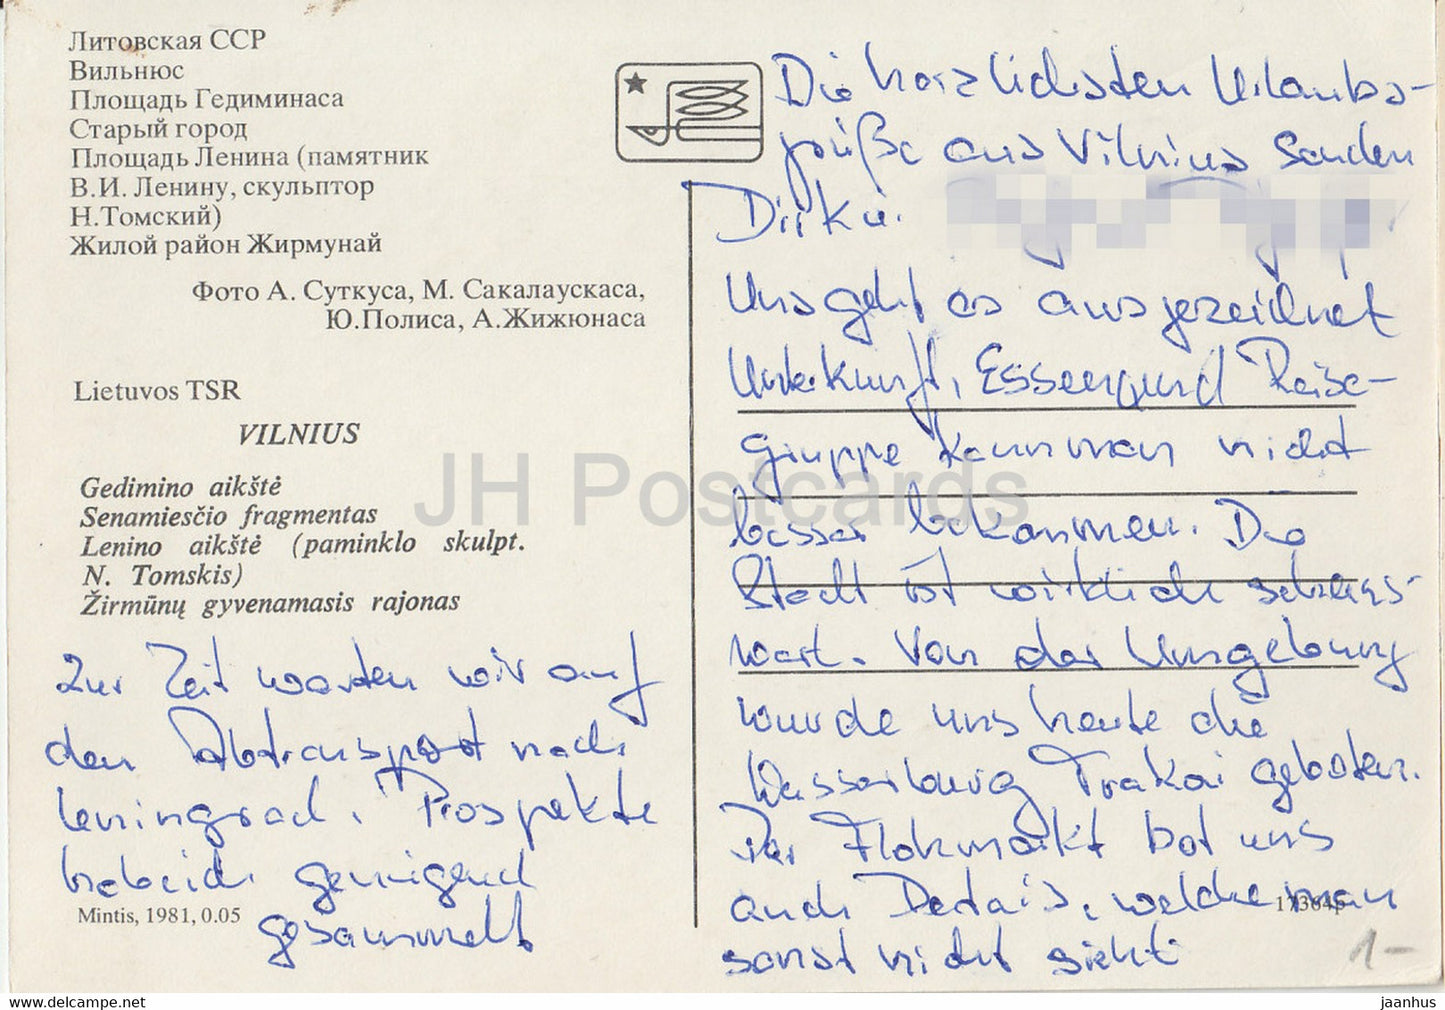 Литовская ССР
Вильнюс
Площадь Гедиминаса
Старый город
Площадь Ленина (памятник
В.И. Ленину, скульптор
Н.Томский)
Жилой район Жирмунай
Фото А. Суткуса, М. Сакалаускаса,
Ю.Полиса, А.Жижюнаса
Lietuvos TSR
VILNIUS
Gedimino aikštė
Senamiesčio fragmentas
Lenino aikštė (paminklo skulpt.
N. Tomskis)
Žirmūnų gyvenamasis rajonas
Zur Zeit warten wir auf
den Abtransport nach
Leningrad. Prospekte
habe ich genügend
gesammelt
Mintis, 1981, 0.05
Die herzlichsten Urlaubs-
grüße aus Vilnius senden
Dir
Uns geht es ausgezeichnet
Unterkunft, Essen und Reise-
gruppe kann man nicht
besser bekommen. Die
Stadt ist wirklich sehens-
wert. Von der Umgebung
wurde uns heute die
Wasserburg Trakai geboten.
Der Flohmarkt bot uns
auch Details, welche man
sonst nicht sieht.
17364p
1-
JH Postcards
www.hippostcard.com/store/jhpostcards
jaanhus